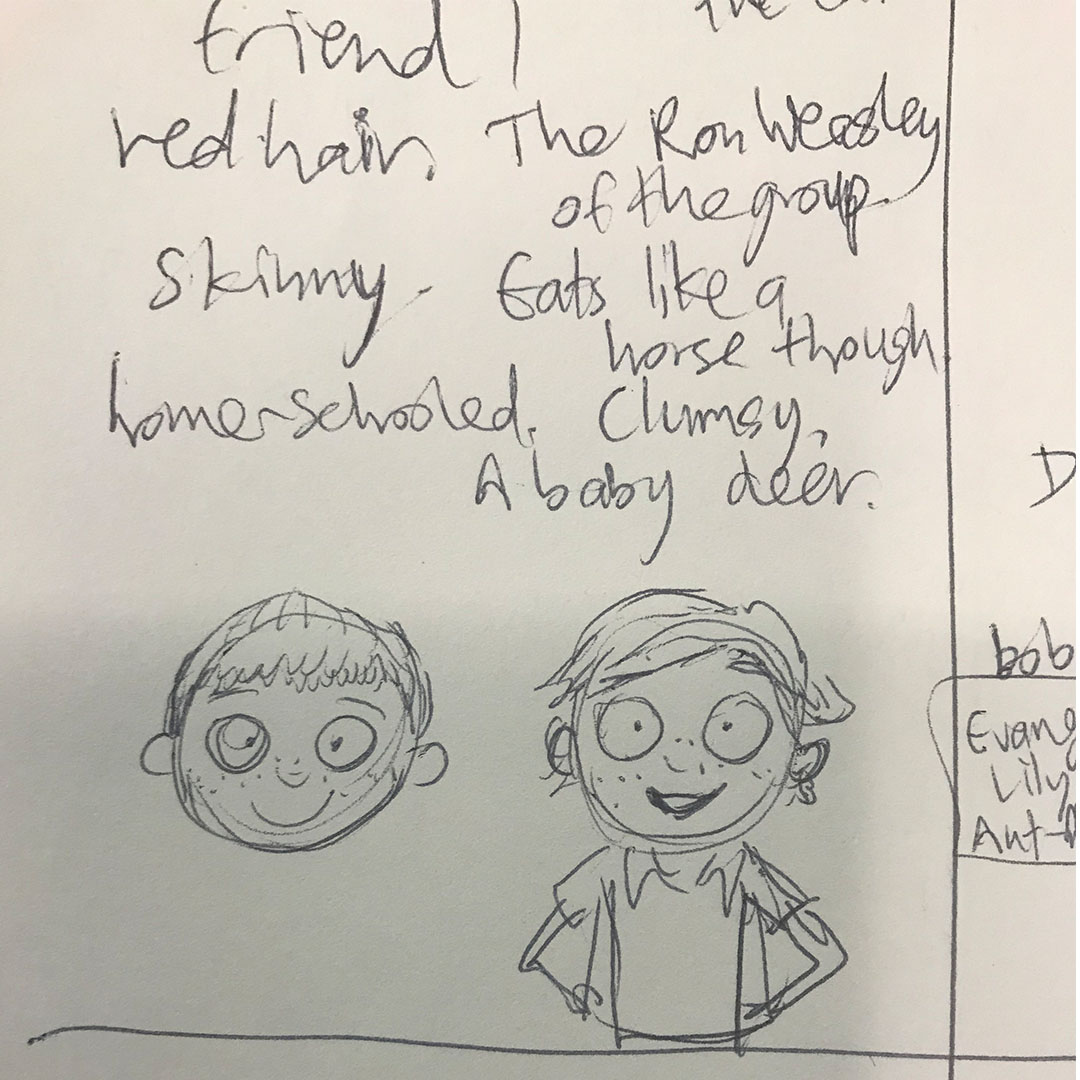 friend 1
red hair. The Ron Weasley
of the group.
Skinny. Eats like a
horse though
home-schooled. Clumsy.
A baby deer.
D
bob
Evang
Lily
Ant-